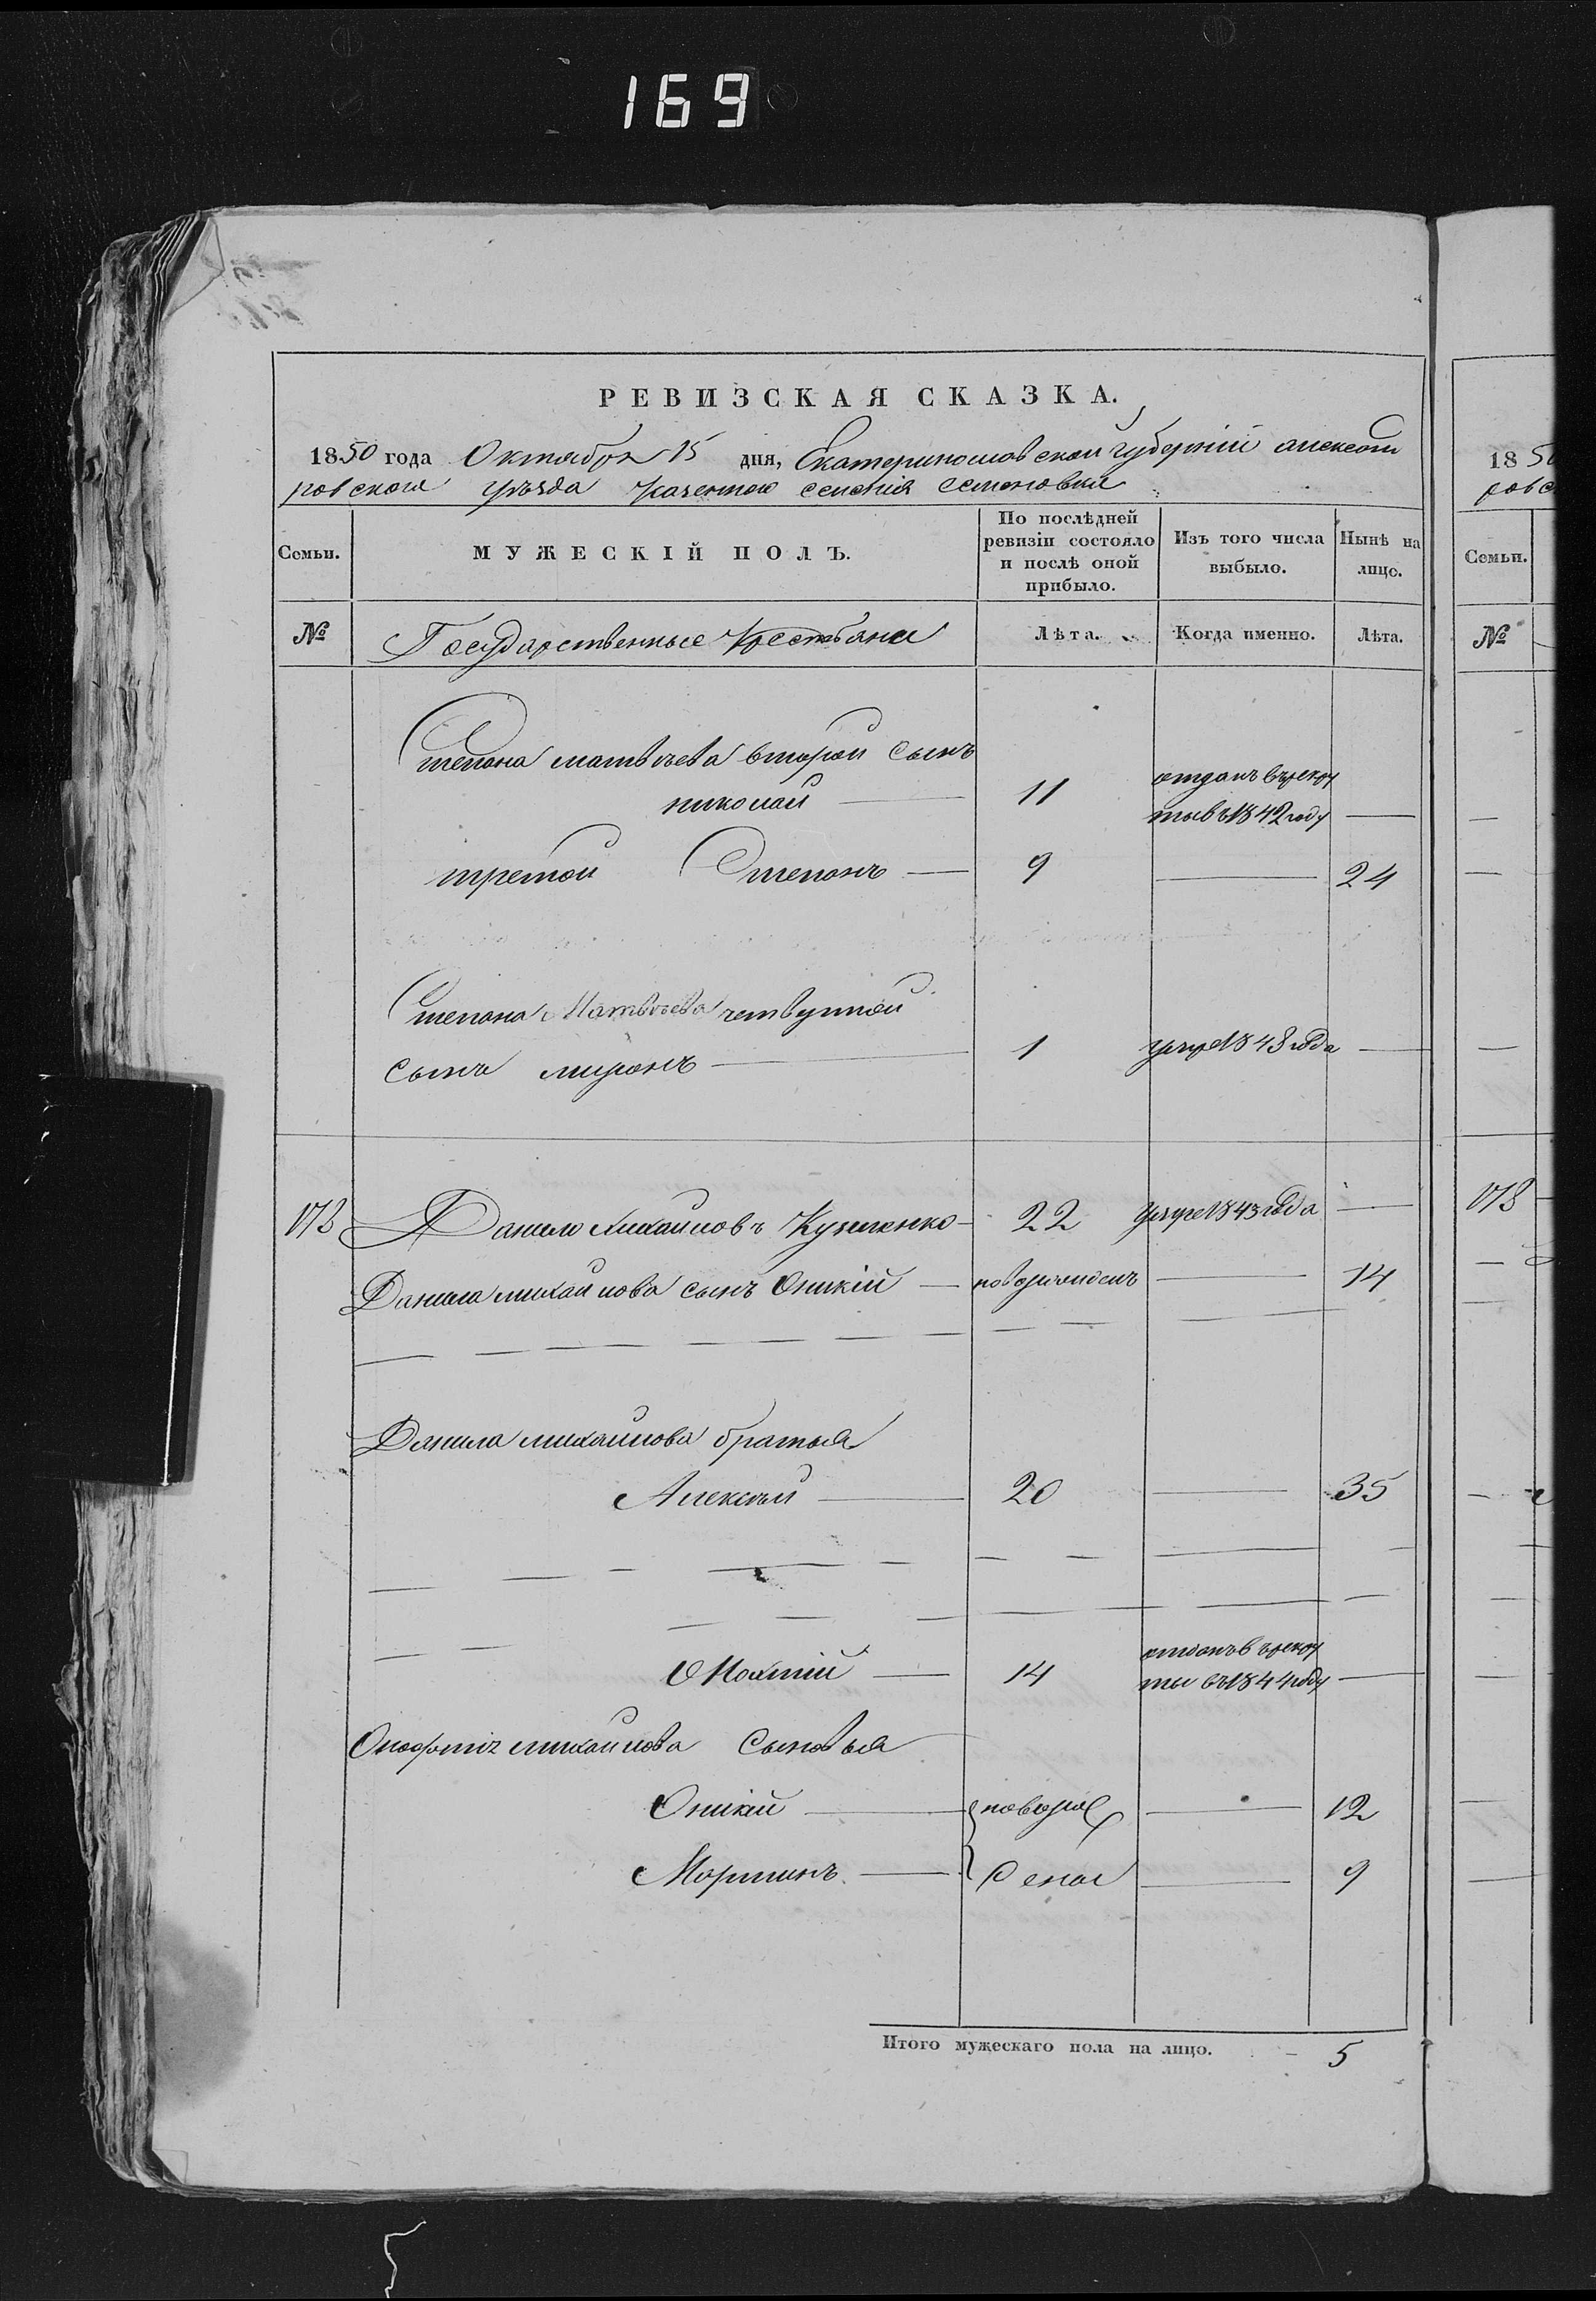 169
РЕВИЗСКАЯ СКАЗКА.
1850 года Октября 15 дня, Екатеринославской губерніи александ
ровского уѣзда казенного селенія семеновки
Семьи.
МУЖЕСКІЙ ПОЛЪ.
По послѣдней ревизіи состояло и послѣ оной прибыло.
Изъ того числа выбыло.
Нынѣ на лицо.
№
Государственные Крестьяне
Лѣта.
Когда именно.
Лѣта.
Степана матвѣева второй сынъ
николай 11 отданъ въ рекру
ты въ 1842 году
третой Степанъ 9 24
Степана Матвѣева четвертой
сынъ миронъ 1 умре 1848 года
173 Данило михайловъ Кузменко 22 умре 1843 года
Данила михайлова сынъ Оникій новорожденъ 14
Данила михайлова братья
Алексѣй 20 35
14 отданъ въ рекру
ты въ 1844 году
михайлова сыновья
Оникій новорож 12
Мартинъ дены 9
Итого мужескаго пола на лицо. 5
18 50
ровс
Семьи.
№
173